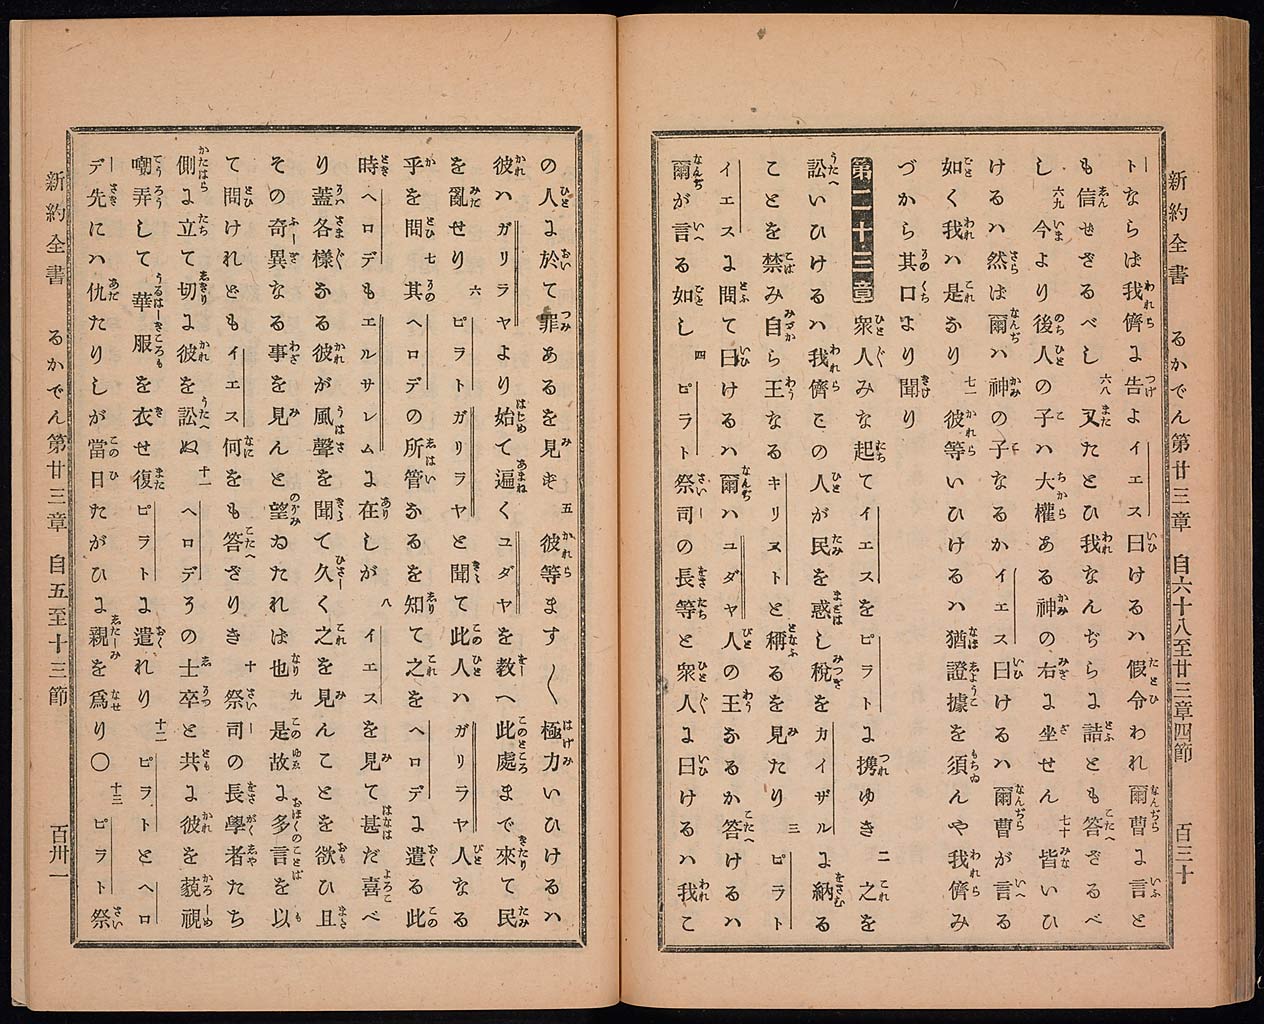 新約全書　るかでん第廿三章　自六十八至廿三章四節　百三十
トならば我儕に告よイエス曰けるハ假令われ爾曹に言と
も信せざるべし 六八 又たとひ我なんぢらに詰とも答ざるべ
し 六九 今より後人の子ハ大權ある神の右に坐せん 七十 皆いひ
けるハ然ば爾ハ神の子なるかイエス曰けるハ爾曹が言る
如く我ハ是なり 七一 彼等いひけるハ猶證據を須んや我儕み
づから其口より聞り
第二十三章　衆人みな起てイエスをピラトに携ゆき 二 之を
訟いひけるハ我儕この人が民を惑し税をカイザルに納る
ことを禁み自ら王なるキリストと稱るを見たり 三 ピラト
イエスに問て曰けるハ爾ハユダヤ人の王なるか答けるハ
爾が言る如し 四 ピラト祭司の長等と衆人に曰けるハ我こ
の人に於て罪あるを見ず 五 彼等ます〱極力いひけるハ
彼ハガリラヤより始て遍くユダヤを教へ此處まで來て民
を亂せり 六 ピラトガリラヤと聞て此人ハガリラヤ人なる
乎を問 七 其ヘロデの所管なるを知て之をヘロデに遣る此
時ヘロデもエルサレムに在しが 八 イエスを見て甚だ喜べ
り蓋各樣なる彼が風聲を聞て久く之を見んことを欲ひ且
その奇異なる事を見んと望ゐたれば也 九 是故に多言を以
て問けれどもイエス何をも答ざりき 十 祭司の長學者たち
側に立て切に彼を訟ぬ 十一 ヘロデその士卒と共に彼を藐視
嘲弄して華服を衣せ復ピラトに遣れり 十二 ピラトとヘロ
デ先にハ仇たりしが當日たがひに親を爲り〇 十三 ピラト祭
新約全書　るかでん第廿三章　自五至十三節　百卅一